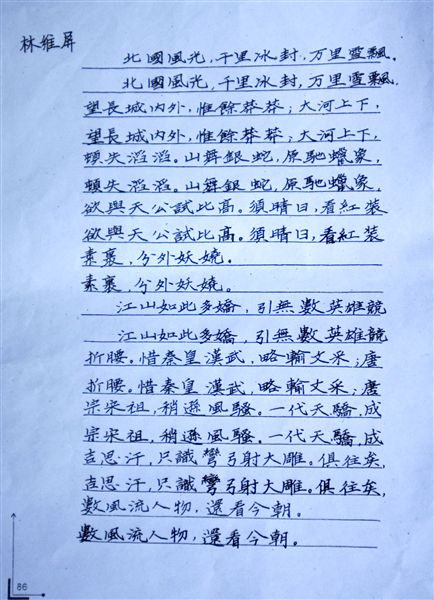 林維屏
北國風光，千里冰封，万里雪飄。
北國風光，千里冰封，万里雪飄．
望長城內外，惟餘莽莽；大河上下，
望長城內外，惟餘莽莽；大河上下，
頓失滔滔。山舞銀蛇，原馳蠟象，
頓失滔滔。山舞銀蛇，原馳蠟象，
欲與天公試比高。須晴日，看紅装
欲與天公試比高。須晴日，看紅装
素裹，分外妖嬈。
素裹，分外妖嬈。
江山如此多嬌，引無數英雄競
江山如此多嬌，引無數英雄競
折腰。惜秦皇漢武，略輸文采；唐
折腰。惜秦皇漢武，略輸文采；唐
宗宋祖，稍遜風騷。一代天驕，成
宗宋祖，稍遜風騷。一代天驕，成
吉思汗，只識彎弓射大雕。俱往矣，
吉思汗，只識彎弓射大雕。俱往矣，
數風流人物，還看今朝。
數風流人物，還看今朝。
86